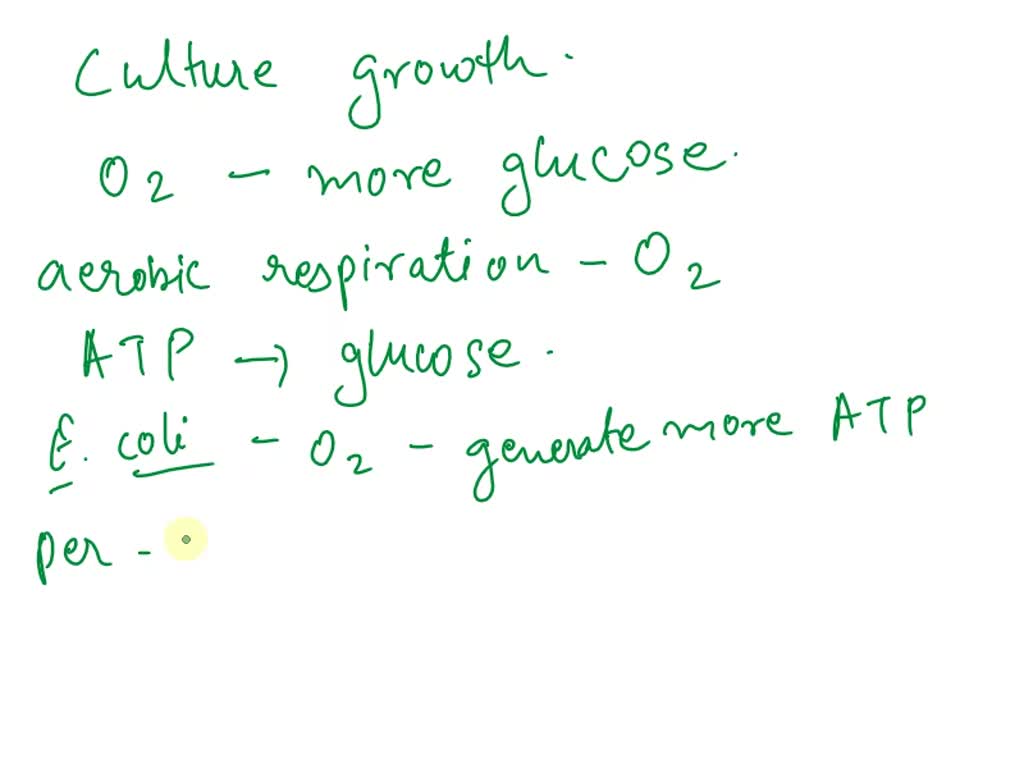 Culture growth.
O2 - more glucose.
aerobic respiration - O2
ATP → glucose.
E. coli - O2 - generate more ATP
per -